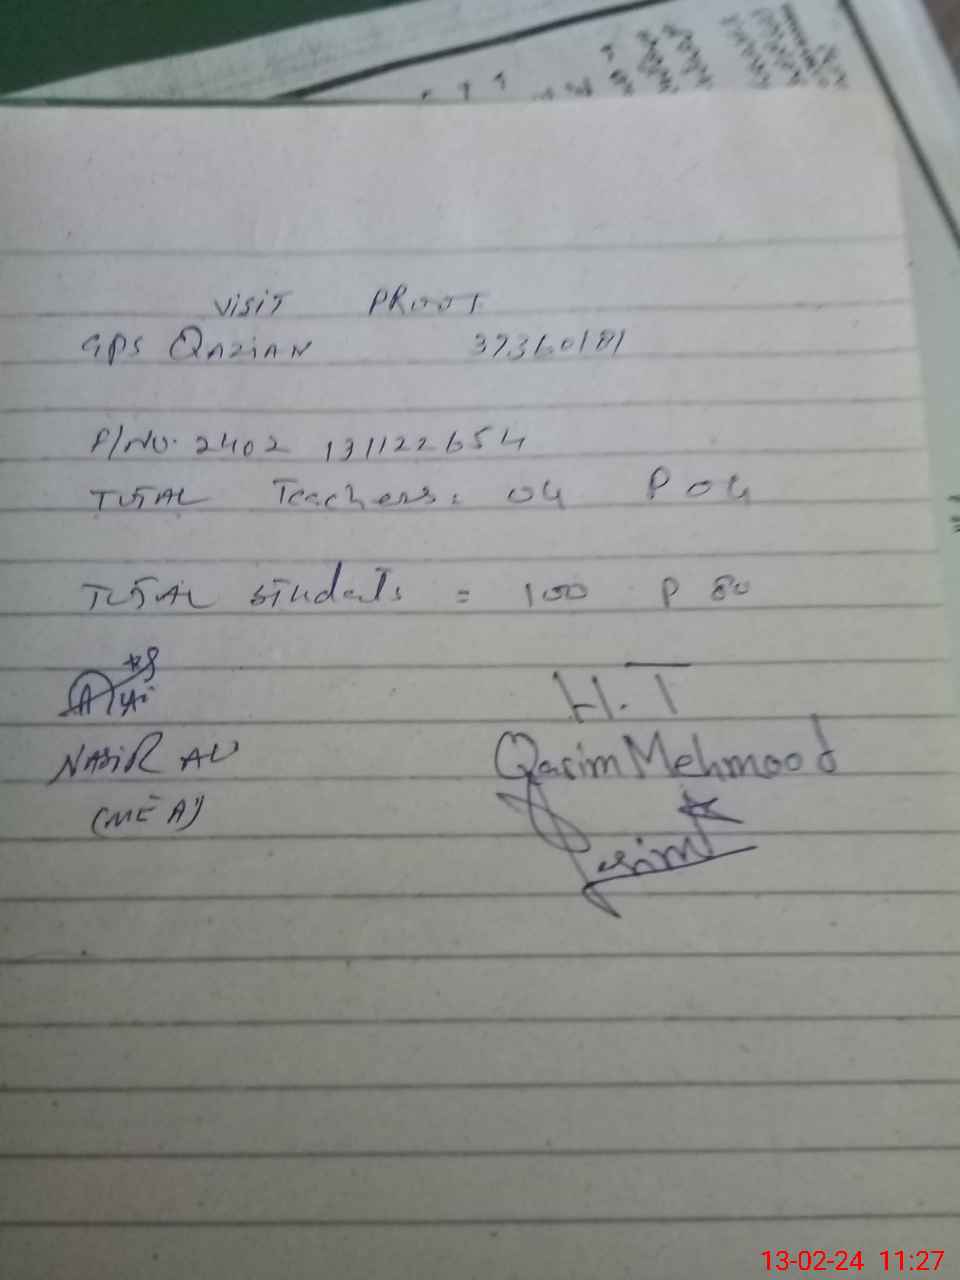 VISIT PROOF
GPS QAZIAN 37360181
P/NO. 2402 131122654
TOTAL Teachers: 04 P 04
TOTAL Students = 100 P 80
H.T
NASIR ALI Qasim Mehmood
(MEA)
Qasim
13-02-24 11:27